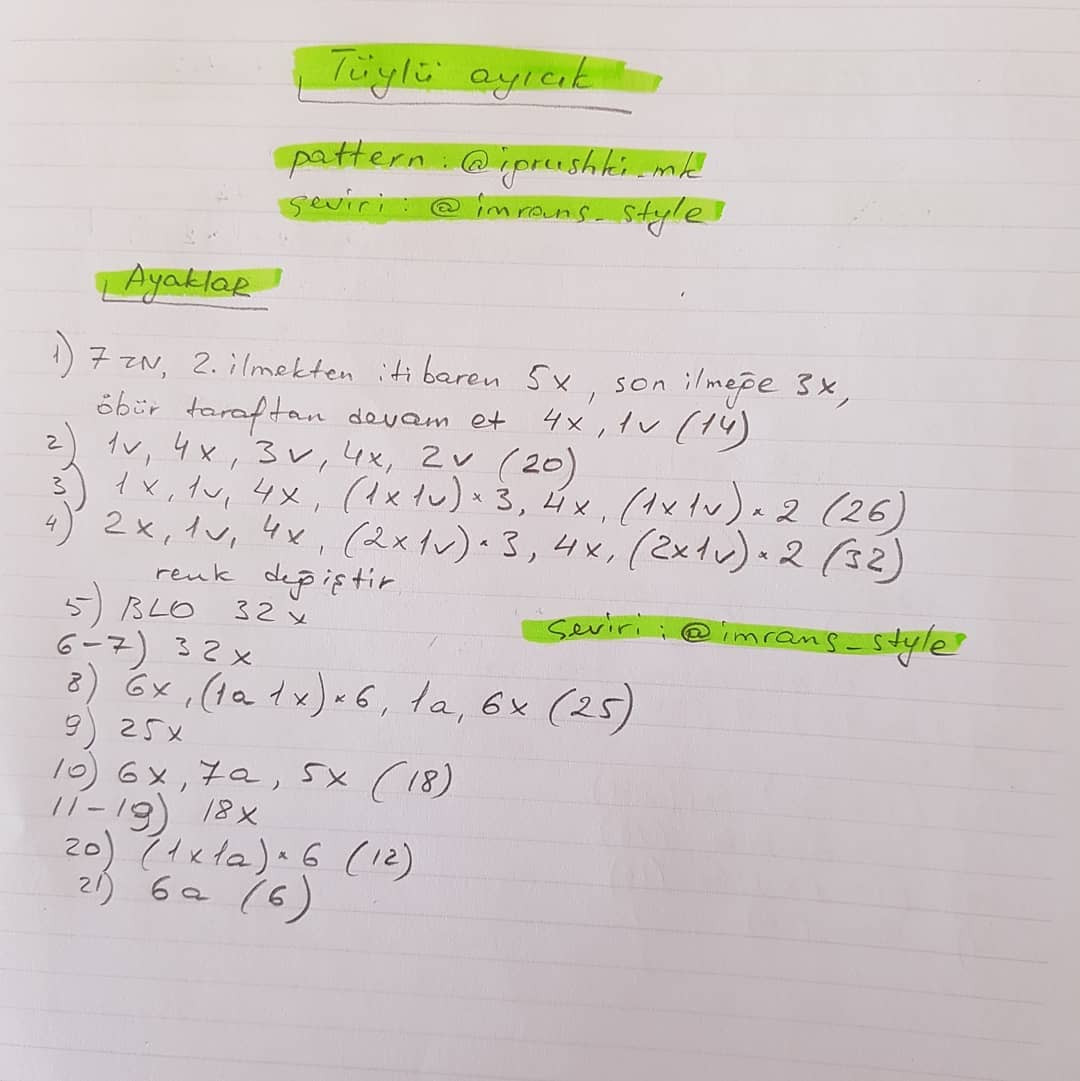 Tüylü ayıcık
pattern: @iprushki_mk
çeviri: @imrans_style
Ayaklar
1) 7 zN, 2. ilmekten itibaren 5x, son ilmeğe 3x,
öbür taraftan devam et 4x, 1v (14)
2) 1v, 4x, 3v, 4x, 2v (20)
3) 1x, 1v, 4x, (1x1v)*3, 4x, (1x1v)*2 (26)
4) 2x, 1v, 4x, (2x1v)*3, 4x, (2x1v)*2 (32)
renk değiştir
5) BLO 32x
çeviri: @imrans_style
6-7) 32x
8) 6x, (1a 1x)*6, 1a, 6x (25)
9) 25x
10) 6x, 7a, 5x (18)
11-19) 18x
20) (1x1a)*6 (12)
21) 6a (6)